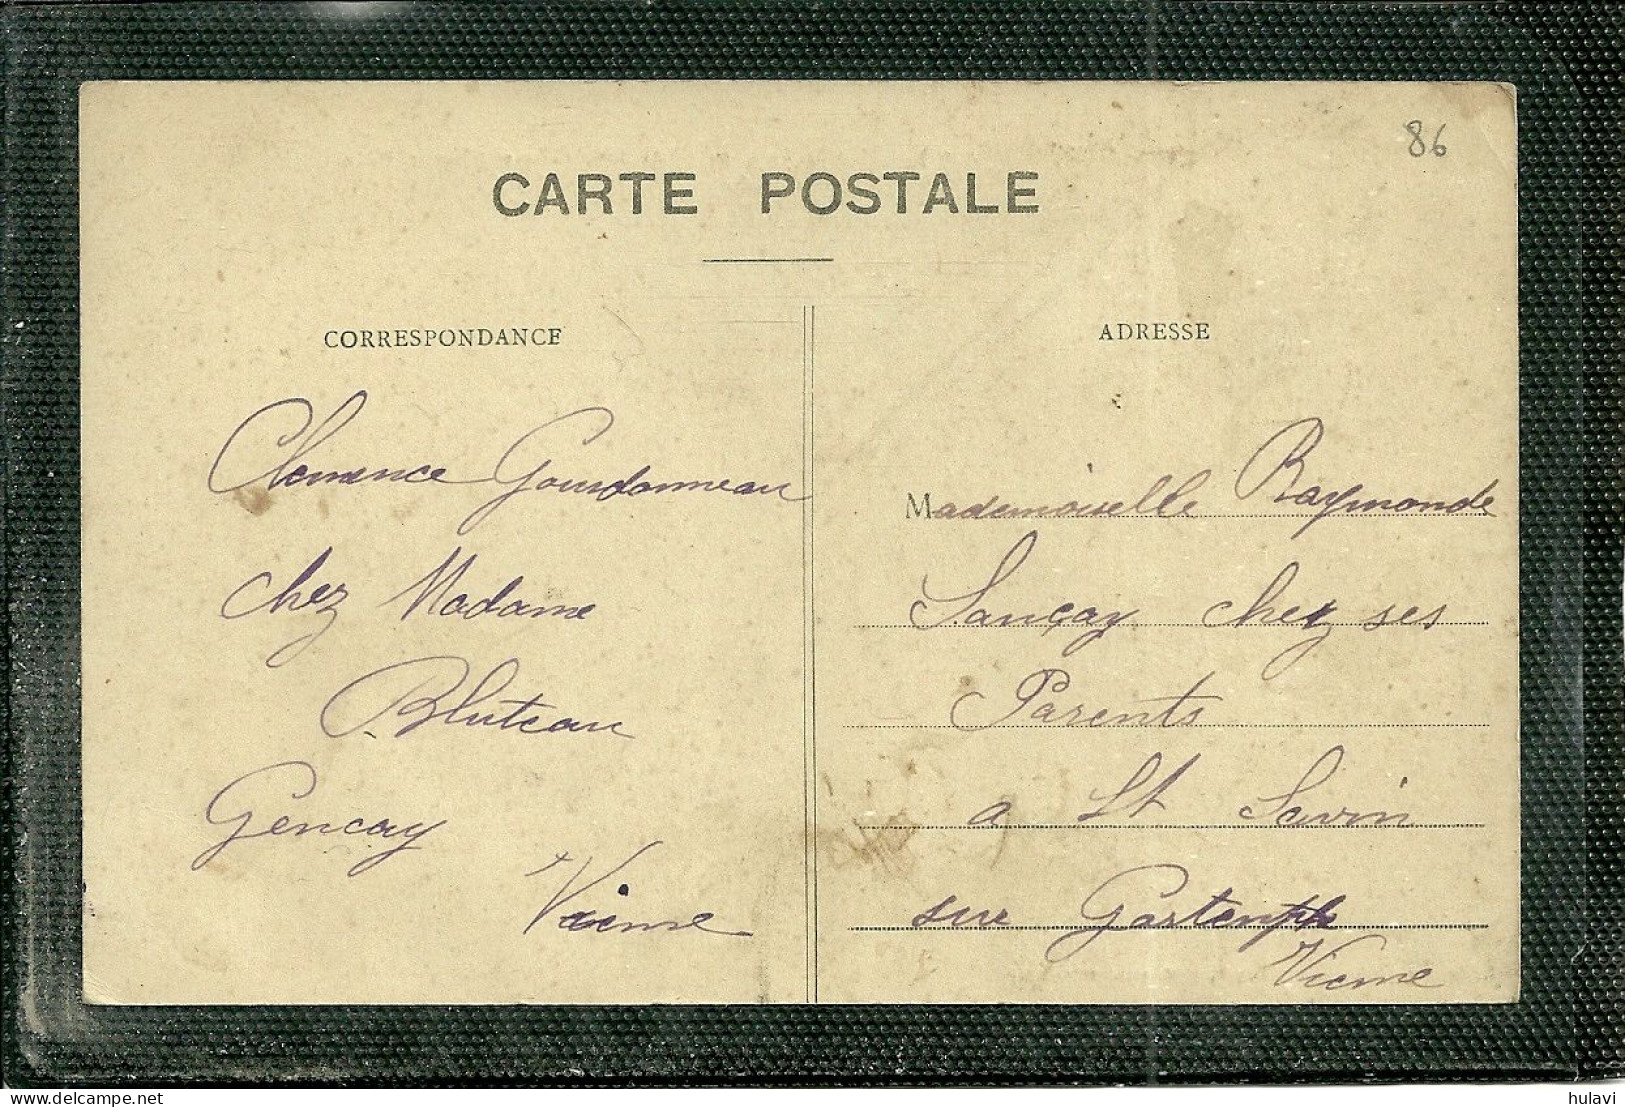 86
CARTE POSTALE
CORRESPONDANCE
Clemence Gourdonneau
chez Madame
Bluteau
Gençay
Vienne
ADRESSE
Mademoiselle Raymonde
Sançay chez ses
Parents
a St Savin
sur Gartempe
Vienne
hulavi